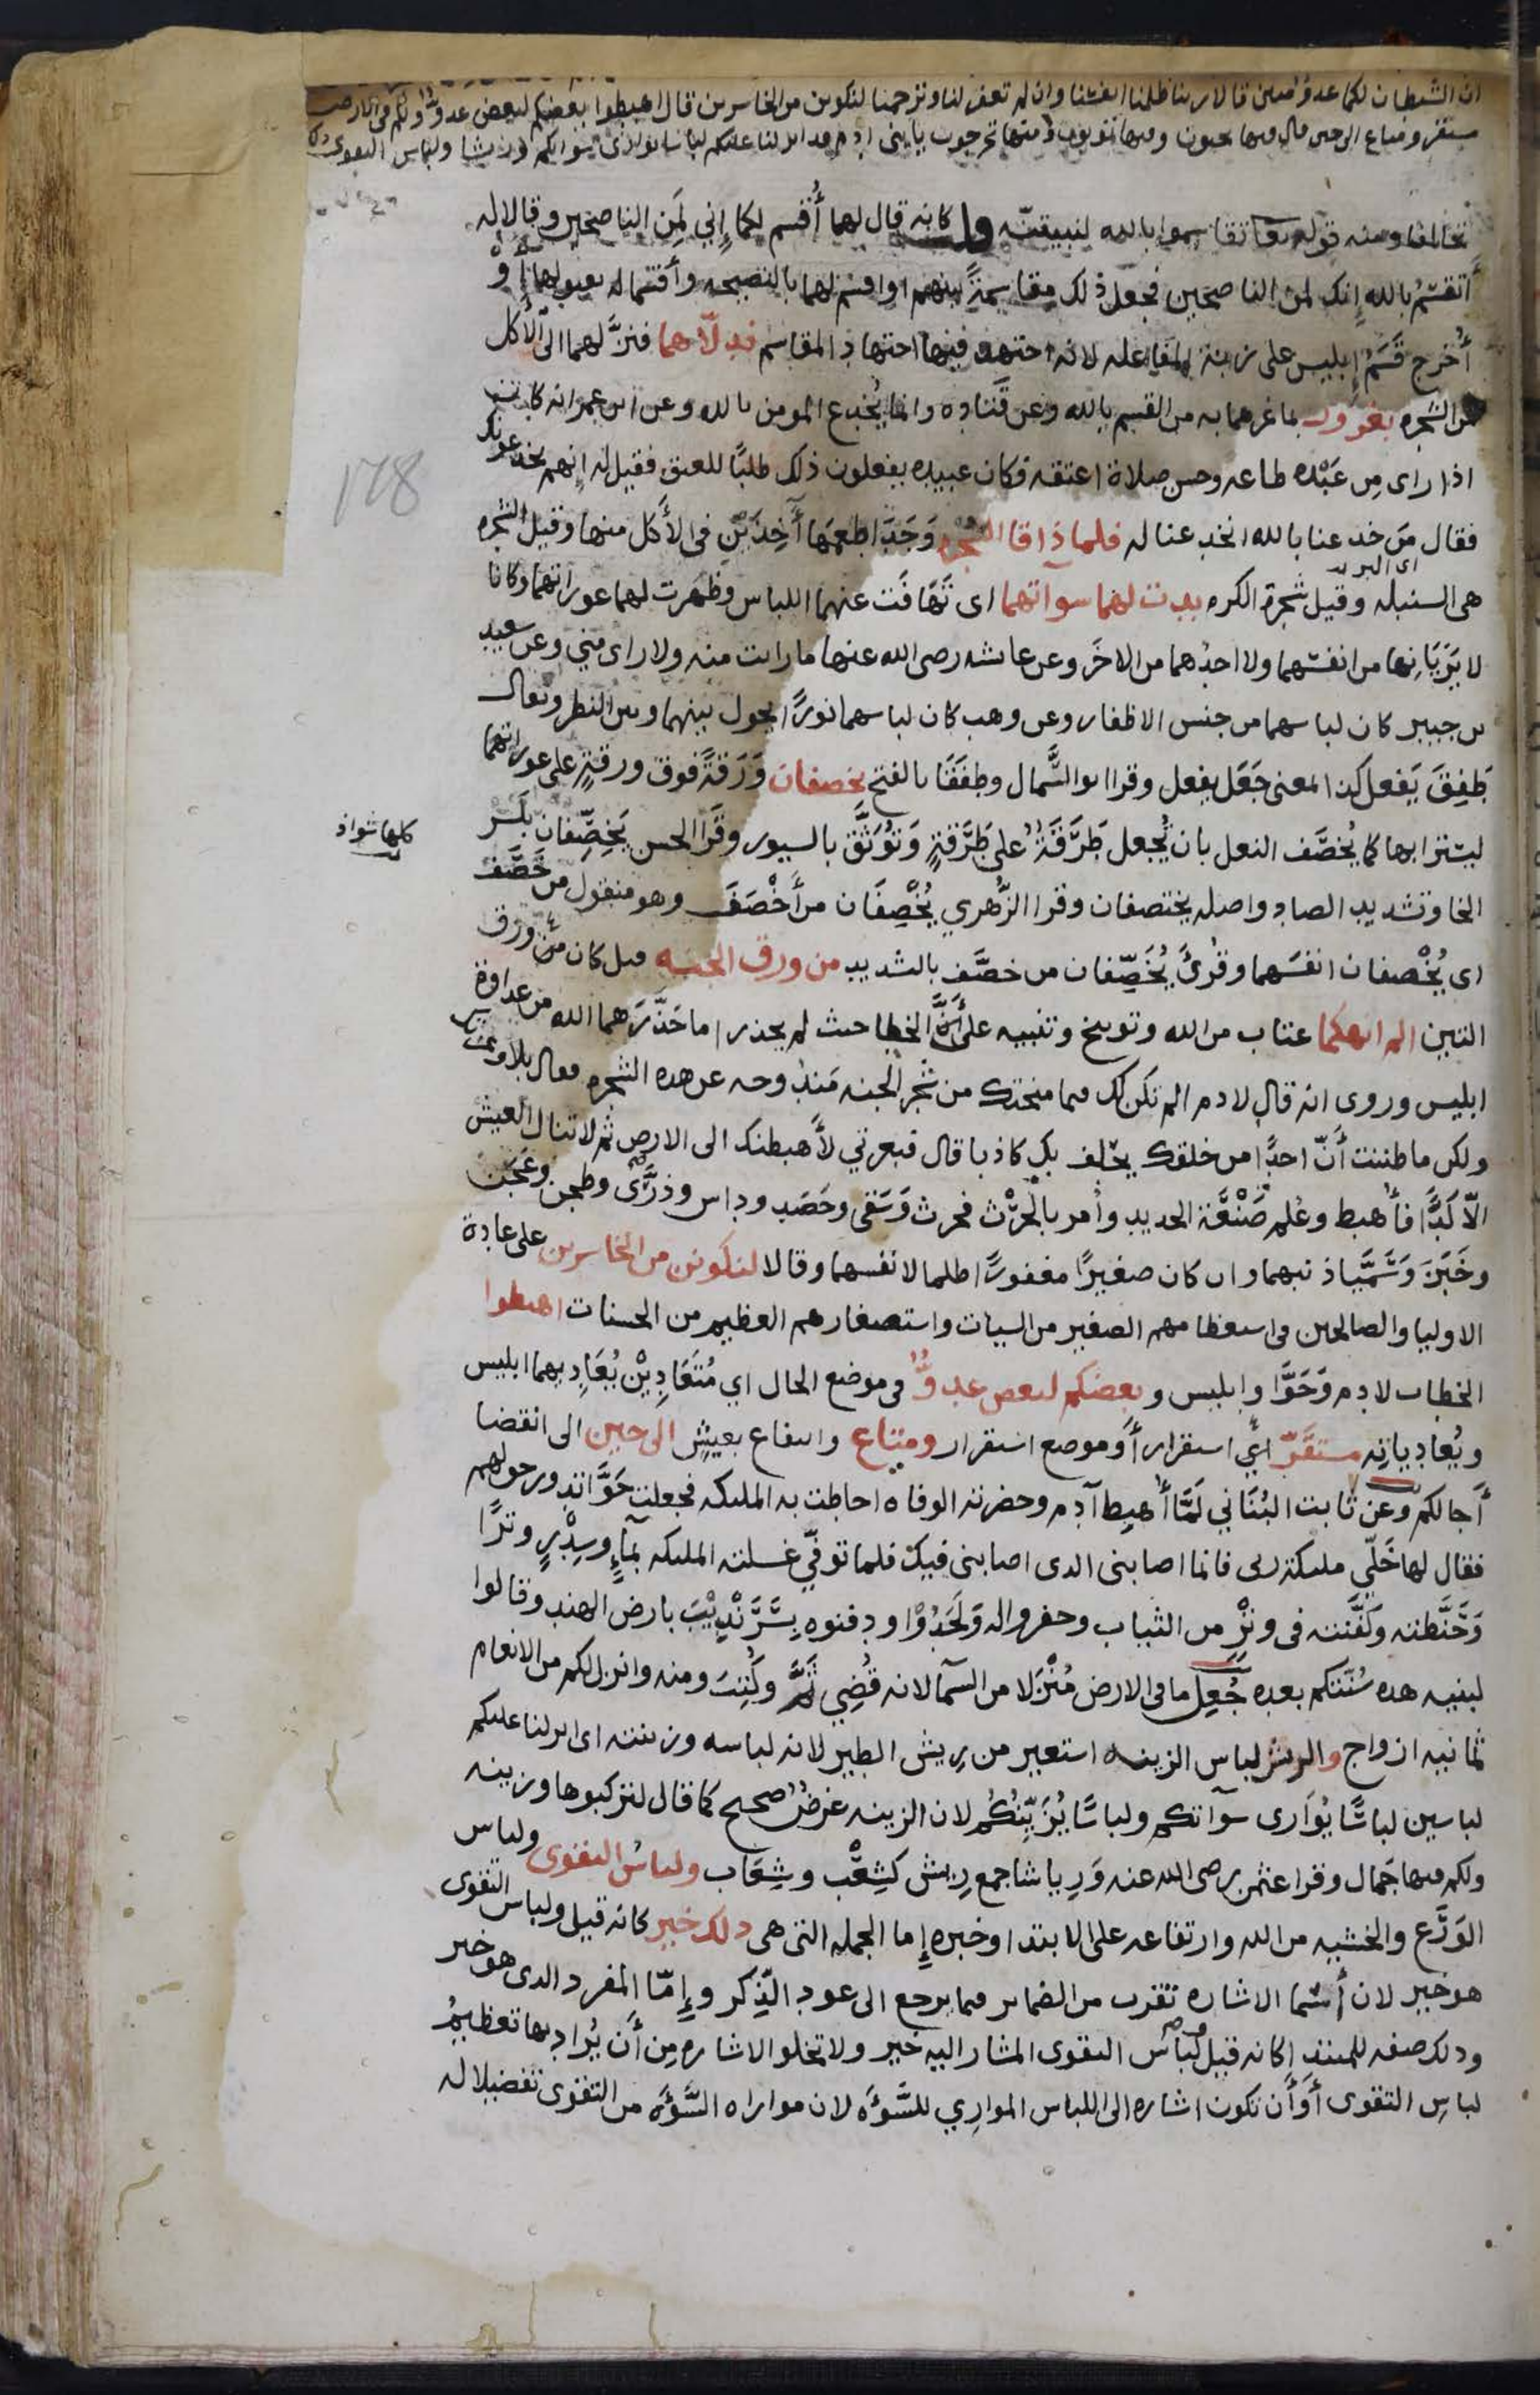 ان الشيطان لكما عدو مبين قالا ربنا ظلمنا انفسنا وان لم تغفر لنا وترحمنا لنكونن من الخاسرين قال اهبطوا بعضكم لبعض عدو ولكم في الارض
مستقر ومتاع الى حين قال فيها تحيون وفيها تموتون ومنها تخرجون يا بني ادم قد انزلنا عليكم لباسا يواري سواتكم وريشا ولباس التقوى ذلك
تحالفا ومنه قوله تعا تقاسموا بالله لنبيتنّه كانه قال لهما أُقسم لكما إِني لمَن الناصحين وقالا له
أتقسمُ بالله إنك لمن الناصحين فجعل ذلك مقاسمةً بينهم او اقسم لهما بالنصيحه وأقسما له بقبولها أَوْ
أُخرج قَسَمُ إبليس على زنة المفاعله لانه اجتهد فيها اجتهاد المقاسم فدلّاهما فنزَّلهما الى الأكل
من الشجره بغرور بما غرهما به من القسم بالله وعن قَتَاده وانما يُخدع المومن بالله وعن ابن عمر انه كان
اذا راى مِن عَبْده طاعه وحسن صلاة اعتقه فكان عبيده يفعلون ذلك طلبًا للعتق فقيل له إنهم يخدعونك
فقال مَن خدعنا بالله انخدعنا له فلما ذاقا الشجره وَجَدَا طعمَها آخِذَيْنِ في الأَكل منها وقيل الشجره
هي السنبله وقيل شجرة الكرم بدت لهما سوآتهما اى تَهَافَتَ عنهما اللباس وظهرت لهما عوراتهما وكانا
اى البر
لا يَرَيَانِها من انفسهما ولا احدُهما من الاخَر وعن عائشه رضى الله عنها ما رايت منه ولا راى مني وعن سعيد
بن جبير كان لباسهما من جنس الاظفار وعن وهب كان لباسهما نورًا يحول بينهما وبين النظر ويقال
طَفِقَ يَفعل كذا المعنى جَعَل يفعل وقرا ابو السَّمال وطفَقَا بالفتح يخصفان وَرَقةً فوق ورقةٍ على عوراتهما
ليستترا بها كما يُخصَف النعل بان تُجعل طَرَقَةٌ على طَرَقةٍ وَتُوَثَّق بالسيور وقَرا الحسن يَخِصِّفان بكسر
كلها شواذ
الخا وتشديد الصاد واصله يختصفان وقرا الزُّهري يُخْصِفَان من أَخْصَفَ وهو منقول من خَصَف
اى يُخْصفان انفسَهما وقرئ يُخَصِّفان من خصَّف بالتشديد من ورق الجنه قيل كان من ورق
التين الم انهكما عتاب من الله وتوبيخ وتنبيه على أَنَّ الخطا حيث لم يحذرا ما حَذَّرَهما الله من عداوة
ابليس وروى انه قال لادم الم تكن لك فيما منحتك من شجر الجنه مَندُوحه عن هذه الشجره فقال بلا وعزتك
ولكن ما ظننت أنّ احدًا من خلقك يحلف بك كاذبا قال فبعزتي لأُهبطنك الى الارض ثم لا تنال العيش
الّا كَدًّا فأُهبط وعُلم صَنْعَة الحديد وأُمر بالحَرْث فحرث وَسَقى وحَصَد وداس وذَرَّى وطحن وعَجَن
وخَبَزَ وَسَمَّيا ذنبهما وان كان صغيرًا مغفورًا ظلما لانفسهما وقالا لنكونن من الخاسرين على عادة
الاوليا والصالحين في استعظامهم الصغير من السيات واستصغارهم العظيم من الحسنات اهبطوا
الخطاب لادم وَحَوَّا وإبليس و بعضكم لبعض عدوٌّ في موضع الحال اي مُتَعَادِيْن يُعَاديهما ابليس
ويُعاديانِه مستقَرّ اي استقرار أَو موضع استقرار ومتاع وانتفاع بعيشٍ الى حين الى انقضا
أَجالكم وعن ثابت البُنَاني لَمَّا أُهبِط آدم وحضرته الوفاه احاطت به الملئكه فجعلت حَوَّا تدور حولهم
فقال لها خَلّي ملئكة ربى فانما اصابنى الذى اصابنى فيك فلما توفّي غسلته الملئكه بماءٍ وسِدْرٍ وترًا
وَحَنَّطته وَكَفَّنته فى وترٍ من الثياب وحفروا له وَلَحَدُوْا ودفنوه بِسَرَنْدِيْبَ بارض الهند وقالوا
لبنيه هذه سُنّتكم بعده جُعِل ما فى الارض مُنْزَلا من السمآ لانه قُضِي ثَمَّ وكُتِبَ ومنه وانزل لكم من الانعام
ثمانيه ازواج والريش لباس الزينه استعير من رِيش الطير لانه لباسه وزينته اى انزلنا عليكم
لباسين لباسًا يُوَارى سوآتكم ولباسًا يُزَيِّنُكُم لان الزينه غرضٌ صحيح كما قال لتركبوها وزينه
ولكم فيها جَمال وقرا عثمن رضى الله عنه وَرِياشا جمع رِيش كشِعْب وشِعَاب ولباسُ التقوى ولباس
الوَرَع والخشيه من الله وارتفاعه على الابتدا وخبره إِما الجمله التى هى ذلك خير كانه قيل ولباس التقوى
هو خير لان أَسما الاشاره تقرب من الضماير فيما يرجع الى عود الذِّكر وإِمّا المفرد الذى هو خير
وذلك صفه للمبتدا كانه قيل ولباس التقوى المشار اليه خير ولا تخلو الاشاره مِن أَن يُراد بها تعظيمُ
لباسِ التقوى أَو أَن تكون اشاره الى اللباس الموارِي للسَّوْءَه لان مواراه السَّوْءَه من التقوى تفضيلا له